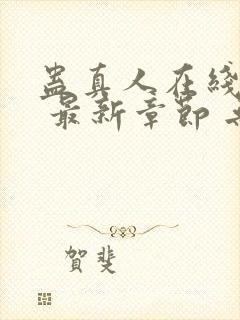 蛊真人在线
最新章節
賀斐